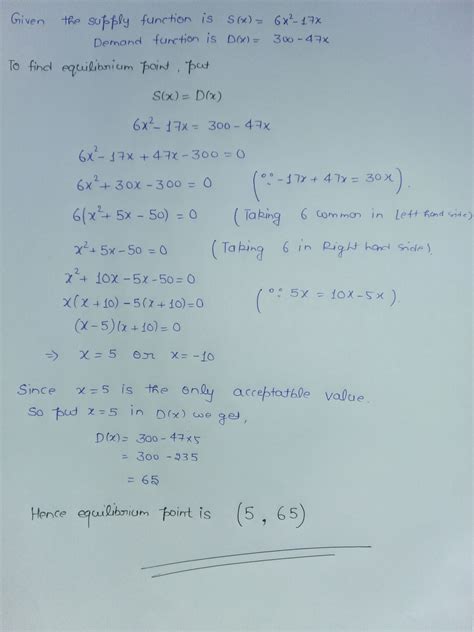 Given the supply function is S(x) = 6x²-17x
Demand function is D(x) = 300-47x
To find equilibrium point, put
S(x) = D(x)
6x²-17x = 300-47x
6x²-17x+47x-300=0
6x²+30x-300=0 (∵ -17x+47x=30x).
6(x²+5x-50)=0 (Taking 6 common in left hand side)
x²+5x-50=0 (Taking 6 in Right hand side)
x²+10x-5x-50=0
x(x+10)-5(x+10)=0 (∵ 5x = 10x-5x)
(x-5)(x+10)=0
⇒ x=5 or x=-10
Since x=5 is the only acceptatble value.
So put x=5 in D(x) we get,
D(x) = 300-47x5
= 300-235
= 65
Hence equilibrium point is (5, 65)